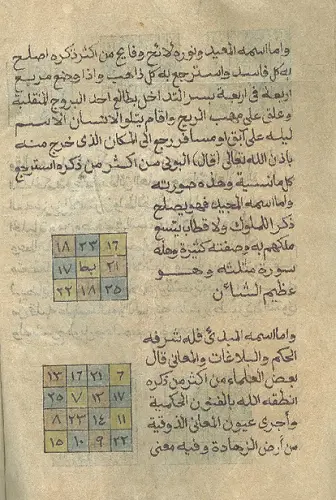 واما اسمه المعيد ونوره لائح وفايح من اكثر ذكره اصلح
به كل فاسد واسترجع به كل ذاهب واذا وضع مربع
اربعة في اربعة بسر التداخل بطالع احد البروج المنقلبة
وعلق على مهب الريح واقام يتلو الانسان الاسم
ليلة على آبق او مسافر رجع الى المكان الذي خرج منه
باذن الله تعالى قال البوني من اكثر من ذكره استرجع
كل ما نسيه وهذه صورته
واما اسمه فهو يصلح
ذكر للملوك ولا قطابا
ملكهم به وصفته كثيرة وهذه
سورة مثلثه وهو
عظيم الشان
١٨ ٢٣ ١٦
١٧ يط ٢١
٢٢ ١٨ ٢٥
واما اسمه المبدئ فله شرفه
الحكم والبلاغات والمعاني قال
بعض العلماء من اكثر من ذكره
انطقه الله بالفنون الحكمية
واجرى عيون المعاني الذوقية
من ارض الزهادة وفيه معنى
١٣ ١٦ ٢١ ٦
٢٥ ٧ ١٢ ١٧
٨ ٢٣ ١٤ ١١
١٥ ١٠ ٩ ٢٢